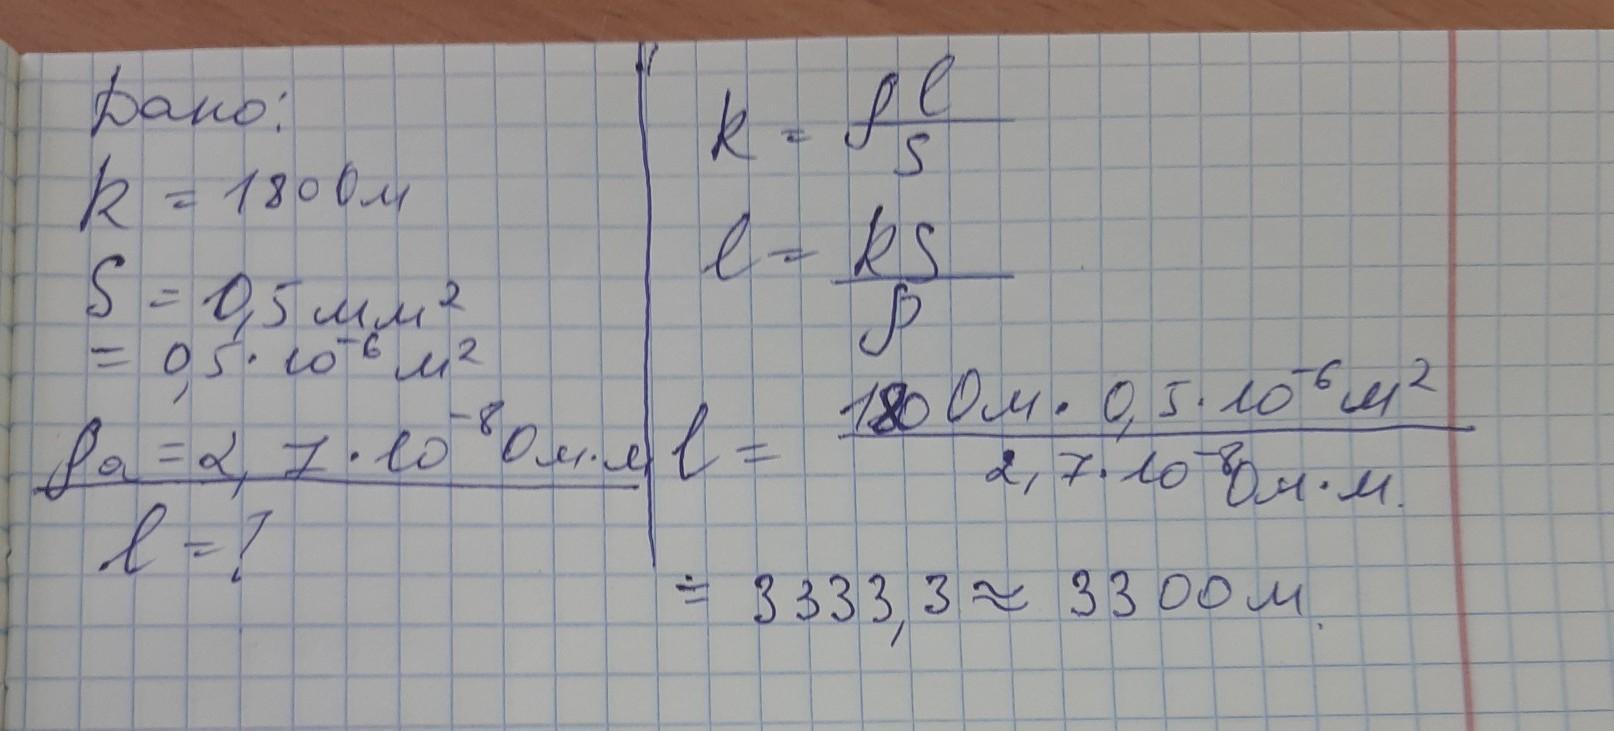 Дано:
R = 180 Ом
S = 0,5 мм²
= 0,5·10⁻⁶ м²
ρa = 2,7·10⁻⁸ Ом·м
l = ?
R = ρl/S
l = RS/ρ
l = 180 Ом · 0,5·10⁻⁶ м² / 2,7·10⁻⁸ Ом·м.
= 3333,3 ≈ 3300 м.